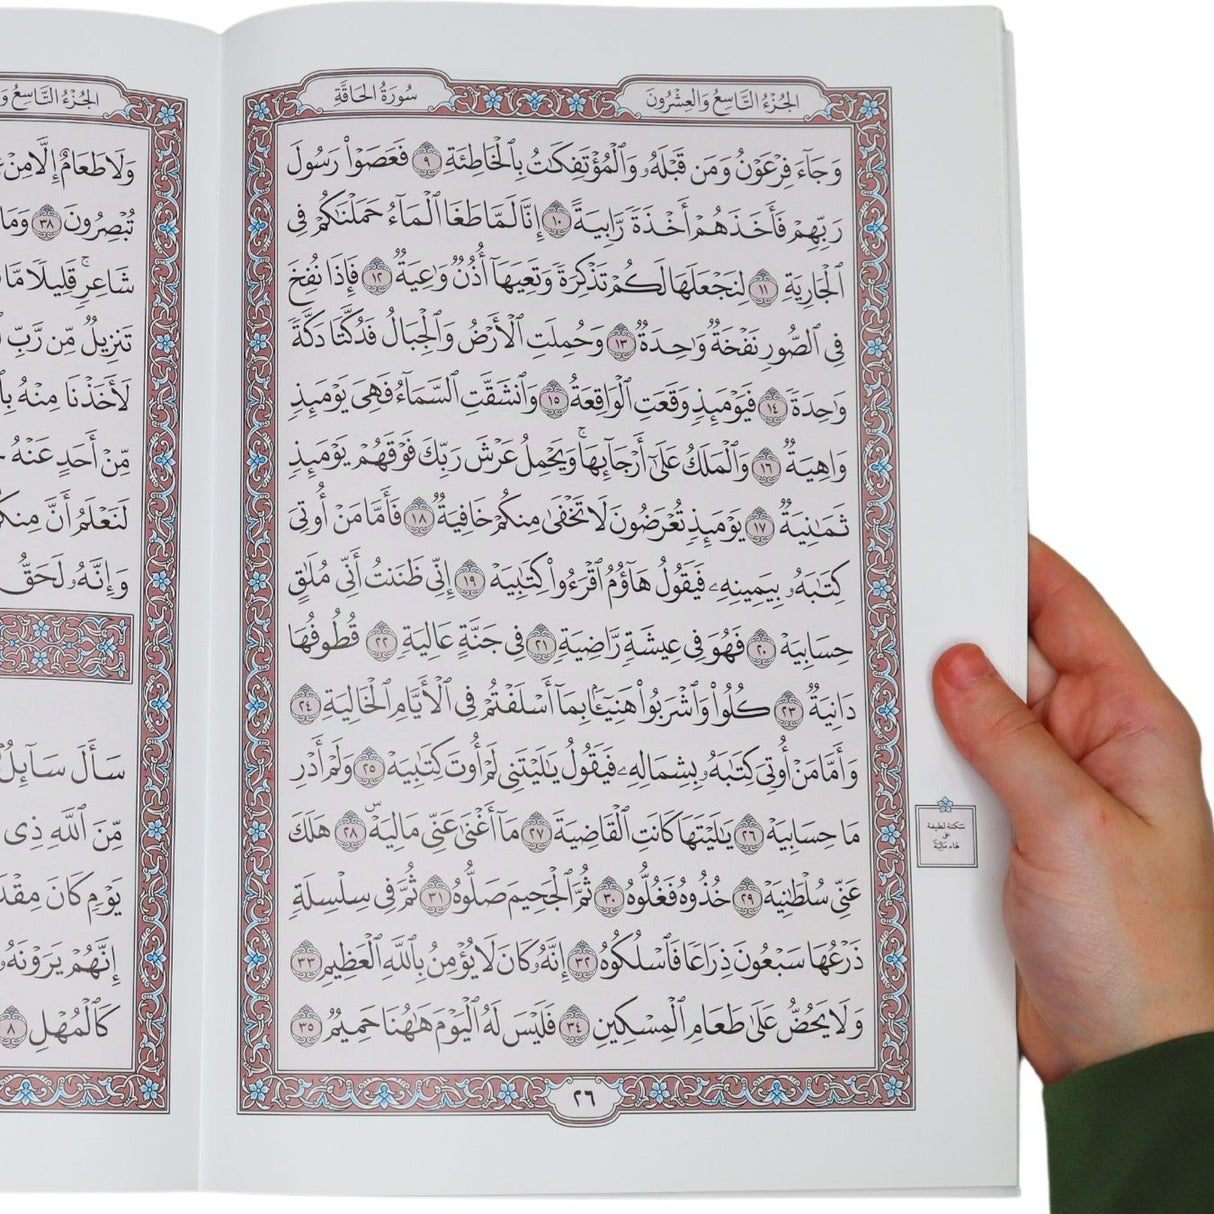 سُورَةُ الحَاقَّةِ
الجُزْءُ التَّاسِعُ وَالعِشْرُونَ
وَجَآءَ فِرْعَوْنُ وَمَن قَبْلَهُۥ وَٱلْمُؤْتَفِكَٰتُ بِٱلْخَاطِئَةِ ٩ فَعَصَوْا۟ رَسُولَ
رَبِّهِمْ فَأَخَذَهُمْ أَخْذَةً رَّابِيَةً ١٠ إِنَّا لَمَّا طَغَا ٱلْمَآءُ حَمَلْنَٰكُمْ فِى
ٱلْجَارِيَةِ ١١ لِنَجْعَلَهَا لَكُمْ تَذْكِرَةً وَتَعِيَهَآ أُذُنٌ وَٰعِيَةٌ ١٢ فَإِذَا نُفِخَ
فِى ٱلصُّورِ نَفْخَةٌ وَٰحِدَةٌ ١٣ وَحُمِلَتِ ٱلْأَرْضُ وَٱلْجِبَالُ فَدُكَّتَا دَكَّةً
وَٰحِدَةً ١٤ فَيَوْمَئِذٍ وَقَعَتِ ٱلْوَاقِعَةُ ١٥ وَٱنشَقَّتِ ٱلسَّمَآءُ فَهِىَ يَوْمَئِذٍ
وَاهِيَةٌ ١٦ وَٱلْمَلَكُ عَلَىٰٓ أَرْجَآئِهَا ۚ وَيَحْمِلُ عَرْشَ رَبِّكَ فَوْقَهُمْ يَوْمَئِذٍ
ثَمَٰنِيَةٌ ١٧ يَوْمَئِذٍ تُعْرَضُونَ لَا تَخْفَىٰ مِنكُمْ خَافِيَةٌ ١٨ فَأَمَّا مَنْ أُوتِىَ
كِتَٰبَهُۥ بِيَمِينِهِۦ فَيَقُولُ هَآؤُمُ ٱقْرَءُوا۟ كِتَٰبِيَهْ ١٩ إِنِّى ظَنَنتُ أَنِّى مُلَٰقٍ
حِسَابِيَهْ ٢٠ فَهُوَ فِى عِيشَةٍ رَّاضِيَةٍ ٢١ فِى جَنَّةٍ عَالِيَةٍ ٢٢ قُطُوفُهَا
دَانِيَةٌ ٢٣ كُلُوا۟ وَٱشْرَبُوا۟ هَنِيٓـًٔۢا بِمَآ أَسْلَفْتُمْ فِى ٱلْأَيَّامِ ٱلْخَالِيَةِ ٢٤
وَأَمَّا مَنْ أُوتِىَ كِتَٰبَهُۥ بِشِمَالِهِۦ فَيَقُولُ يَٰلَيْتَنِى لَمْ أُوتَ كِتَٰبِيَهْ ٢٥ وَلَمْ أَدْرِ
مَا حِسَابِيَهْ ٢٦ يَٰلَيْتَهَا كَانَتِ ٱلْقَاضِيَةَ ٢٧ مَآ أَغْنَىٰ عَنِّى مَالِيَهْ ۜ ٢٨ هَلَكَ
عَنِّى سُلْطَٰنِيَهْ ٢٩ خُذُوهُ فَغُلُّوهُ ٣٠ ثُمَّ ٱلْجَحِيمَ صَلُّوهُ ٣١ ثُمَّ فِى سِلْسِلَةٍ
ذَرْعُهَا سَبْعُونَ ذِرَاعًا فَٱسْلُكُوهُ ٣٢ إِنَّهُۥ كَانَ لَا يُؤْمِنُ بِٱللَّهِ ٱلْعَظِيمِ ٣٣
وَلَا يَحُضُّ عَلَىٰ طَعَامِ ٱلْمِسْكِينِ ٣٤ فَلَيْسَ لَهُ ٱلْيَوْمَ هَٰهُنَا حَمِيمٌ ٣٥
٢٦
سكتة لطيفة
على
هاء مَالِيَهْ
الجُزْءُ التَّاسِعُ
وَلَا طَعَامٌ إِلَّا مِنْ
تُبْصِرُونَ ٣٨ وَمَا
شَاعِرٍ ۚ قَلِيلًا مَّا
تَنزِيلٌ مِّن رَّبِّ
لَأَخَذْنَا مِنْهُ
مِّنْ أَحَدٍ عَنْهُ
لَنَعْلَمُ أَنَّ
وَإِنَّهُۥ لَحَقُّ
سَأَلَ سَآئِلٌۢ
مِّنَ ٱللَّهِ ذِى
يَوْمٍ كَانَ
إِنَّهُمْ يَرَوْنَهُۥ
كَٱلْمُهْلِ ٨